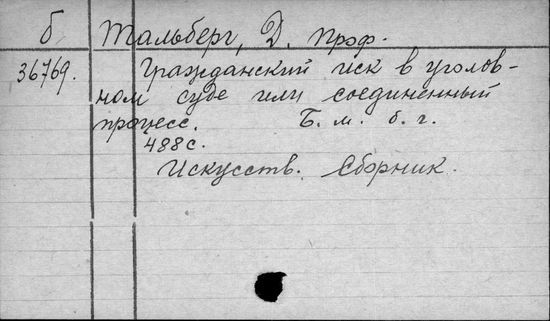 б Тальберг, Д. проф.
36769. Гражданский иск в уголов-
ном суде или соединенный
процесс. Б. м. б. г.
488 с.
Искусств. сборник.